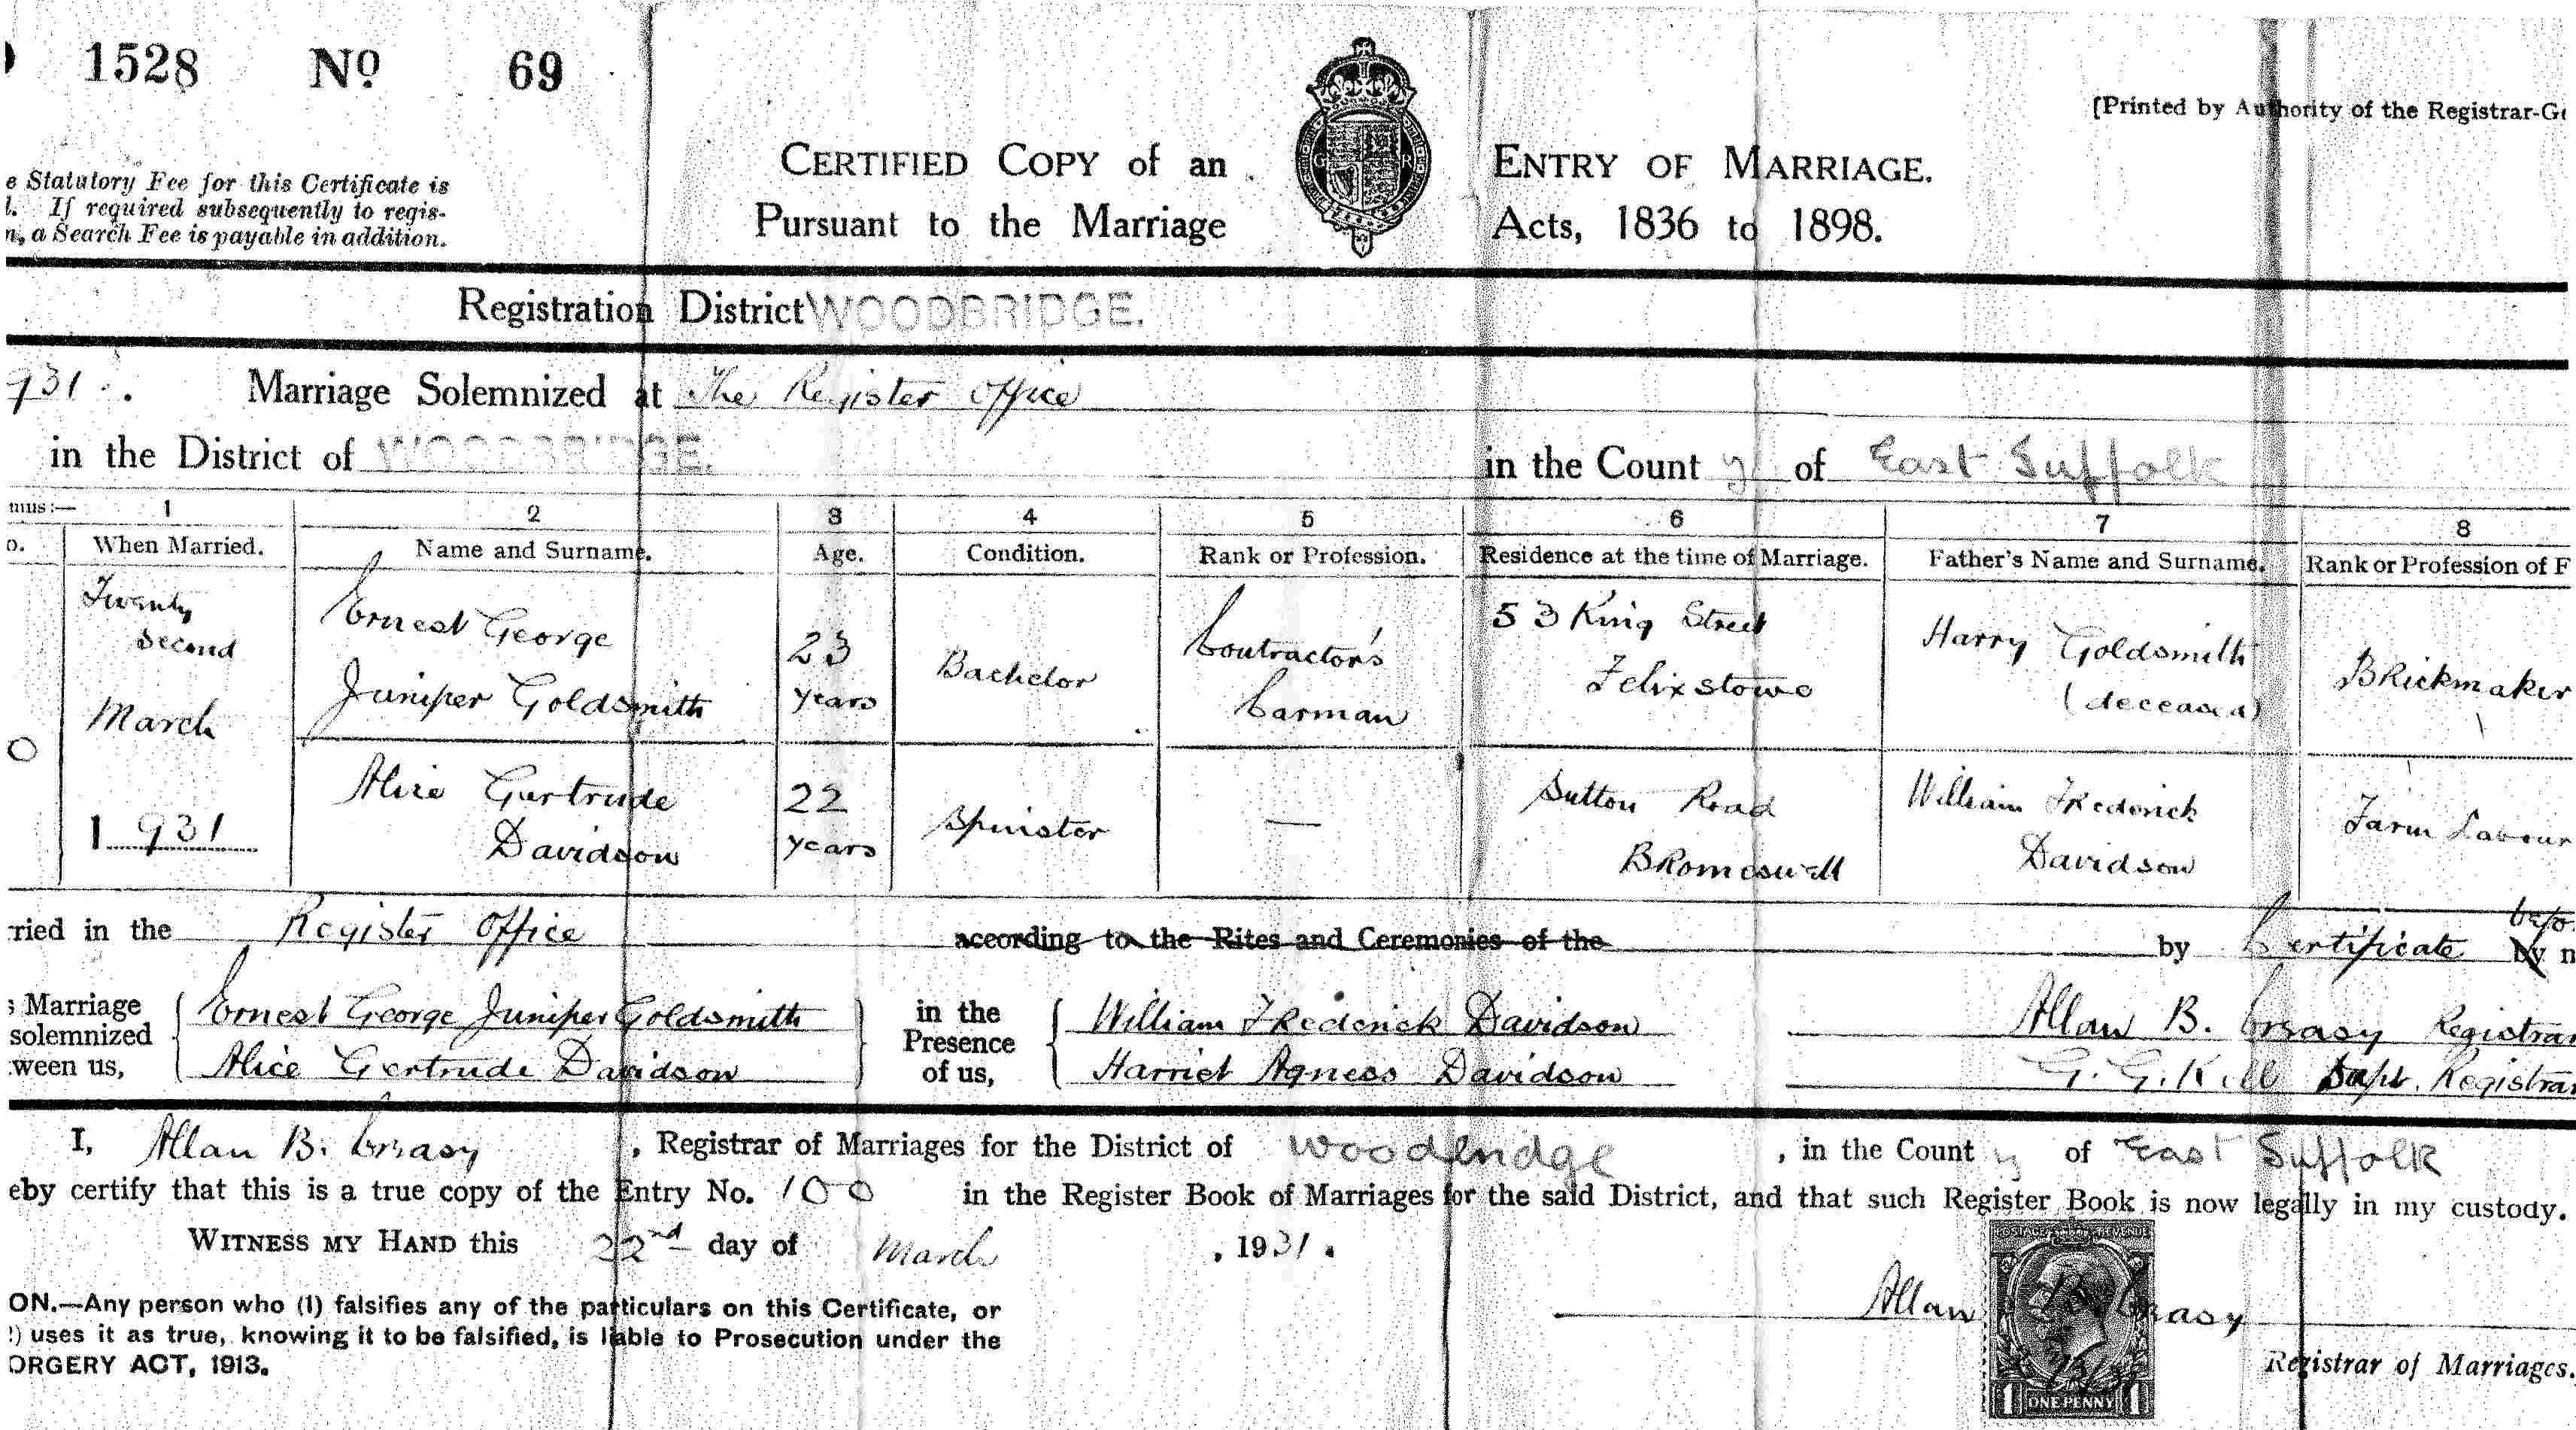 1528 No 69
[Printed by Authority of the Registrar-Ge
e Statutory Fee for this Certificate is
l. If required subsequently to regis-
n, a Search Fee is payable in addition.
CERTIFIED COPY of an ENTRY OF MARRIAGE.
Pursuant to the Marriage Acts, 1836 to 1898.
G R
Registration District WOODBRIDGE.
931. Marriage Solemnized at The Register Office
in the District of WOODBRIDGE. in the County of East Suffolk
mns:— 1 2 3 4 5 6 7 8
o. When Married. Name and Surname. Age. Condition. Rank or Profession. Residence at the time of Marriage. Father's Name and Surname. Rank or Profession of F
Twenty second March 1931
Ernest George
Juniper Goldsmith
23 years
Bachelor
Contractor's
Carman
53 King Street
Felixstowe
Harry Goldsmith
(deceased)
Brickmaker
Alice Gertrude
Davidson
22 years
Spinster
—
Sutton Road
Bromeswell
William Frederick
Davidson
Farm Labour
rried in the Register Office according to the Rites and Ceremonies of the by Certificate befo. by m
s Marriage solemnized ween us, Ernest George Juniper Goldsmith
Alice Gertrude Davidson
in the Presence of us, William Frederick Davidson
Harriet Agness Davidson
Allan B. Creasy Registrar
G. G. Kell Supt. Registrar
I, Allan B. Creasy, Registrar of Marriages for the District of Woodbridge, in the County of East Suffolk
eby certify that this is a true copy of the Entry No. 100 in the Register Book of Marriages for the said District, and that such Register Book is now legally in my custody.
WITNESS MY HAND this 22nd day of March, 1931.
ON.—Any person who (1) falsifies any of the particulars on this Certificate, or
2) uses it as true, knowing it to be falsified, is liable to Prosecution under the
ORGERY ACT, 1913.
POSTAGE REVENUE
Allan B. Creasy
1 ONE PENNY 1
Registrar of Marriages.